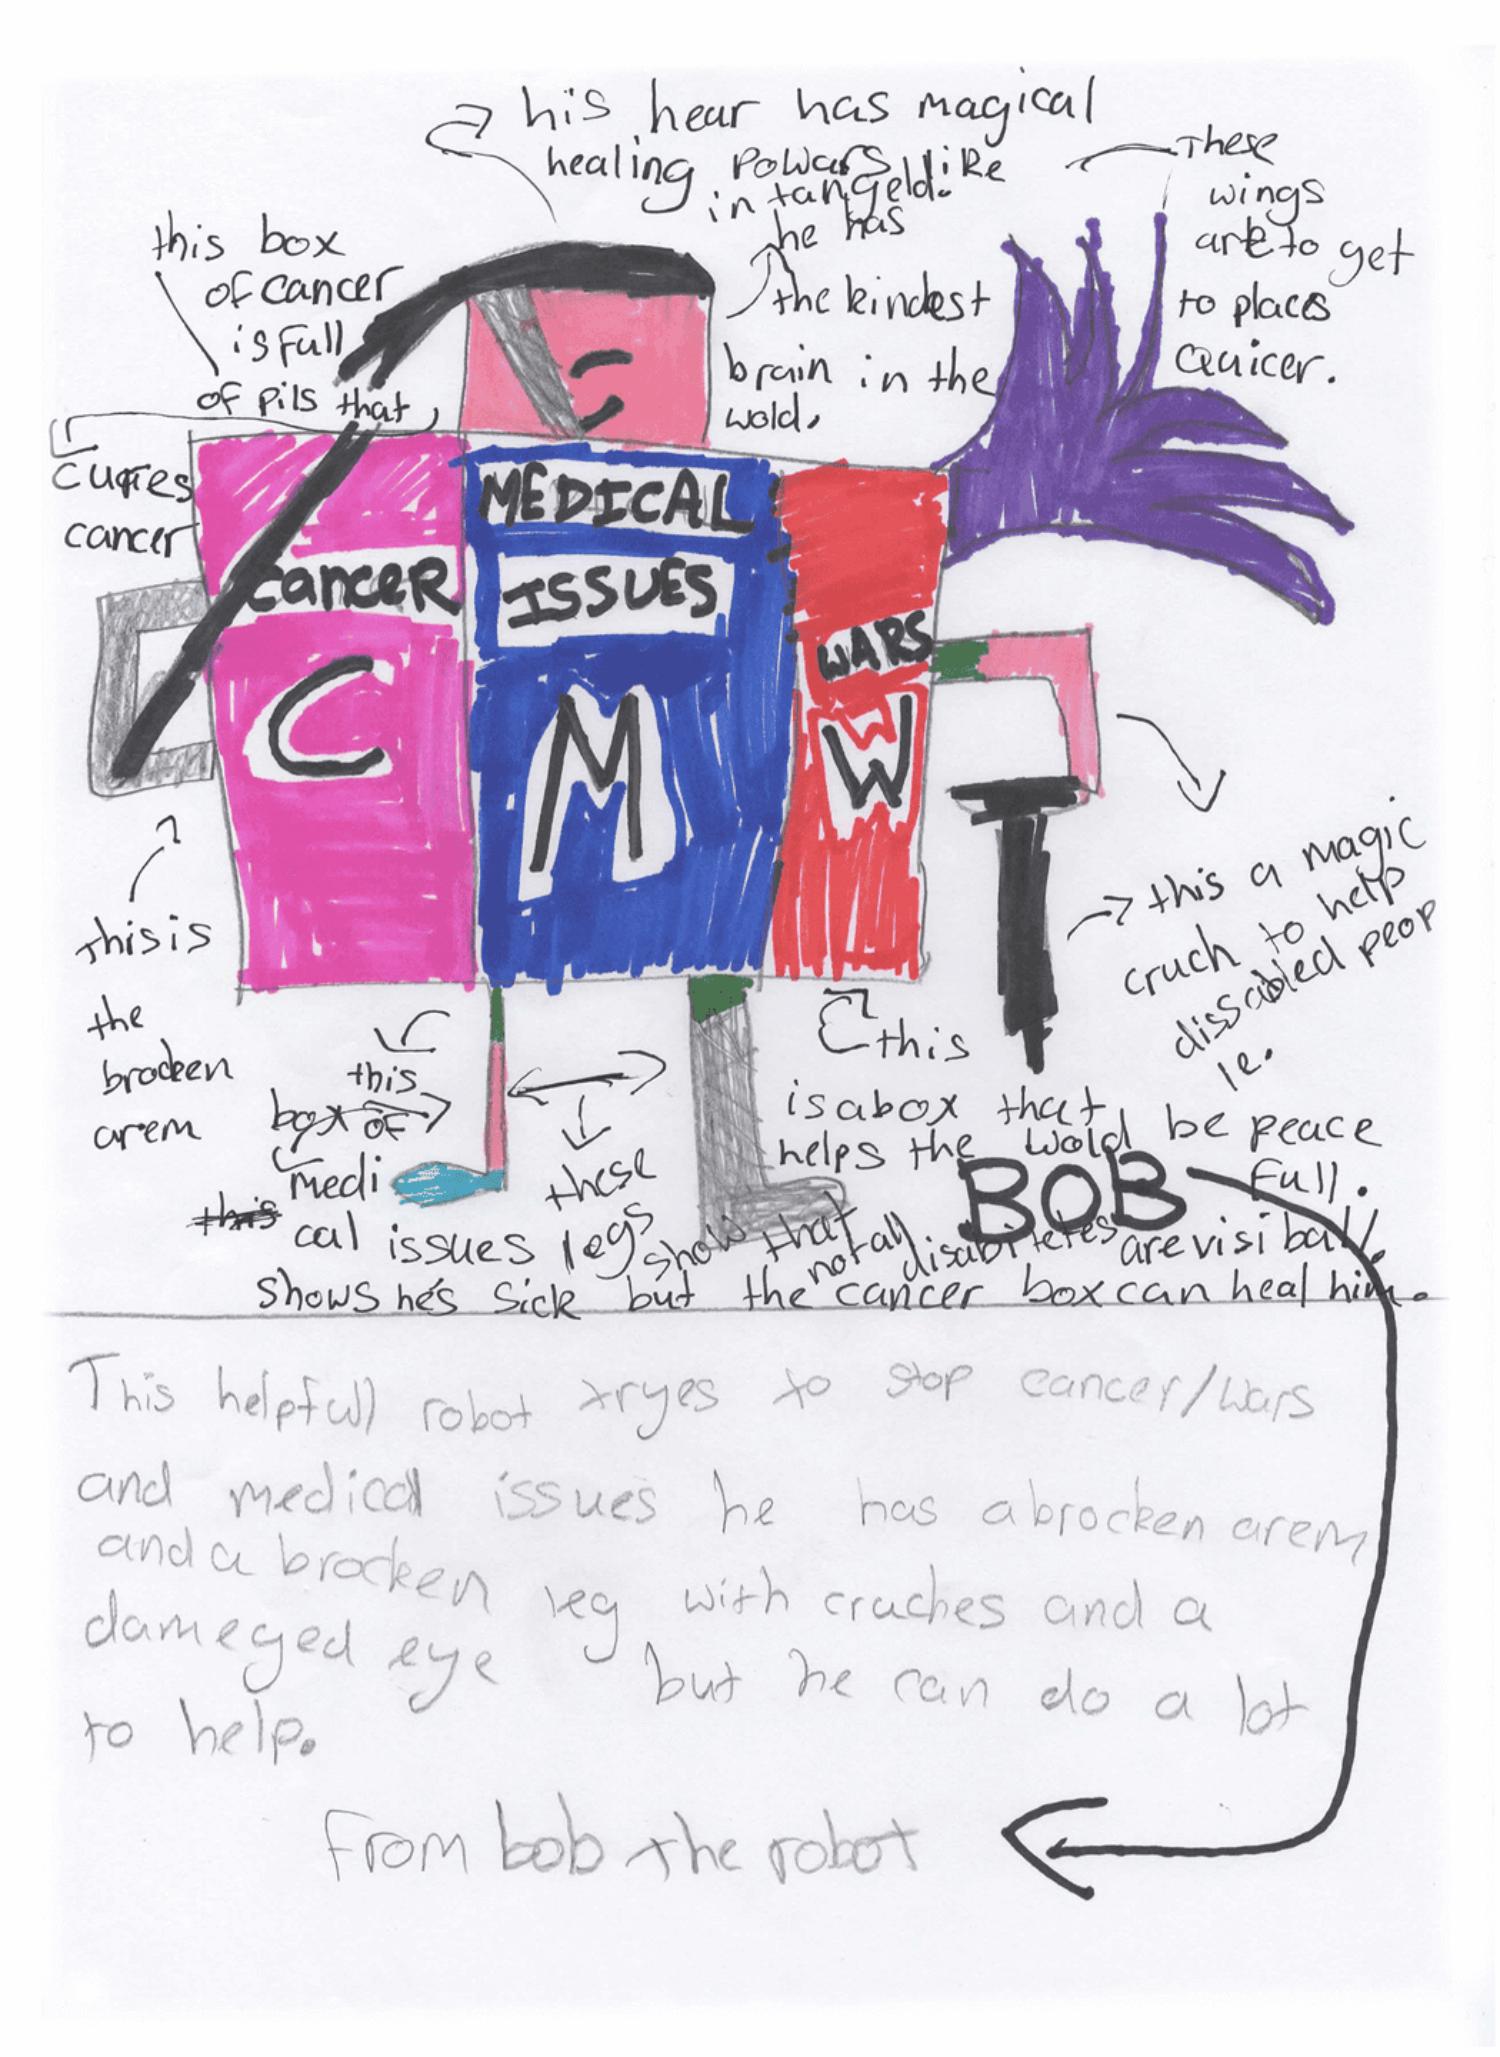 his hear has magical
healing powars like
in tangeld.
he has
the kindest
brain in the
wold.
These
wings
are to get
to places
Quicer.
this box
of cancer
is full
of pils that
cures
cancer
MEDICAL
ISSUES
cancer
WARS
C
M
W
This is
the
brocken
arem
this a magic
cruch to help
dissabled peop
le.
this
box of
medi
this
cal issues
shows he's sick but the cancer box can heal him.
these
legs show that not all disabiletes are visiball.
this
is a box that
helps the wold be peace
full.
BOB
This helpfull robot tryes to stop cancer/wars
and medical issues he has a brocken arem
and a brocken leg with cruches and a
dameged eye but he can do a lot
to help.
From bob the robot